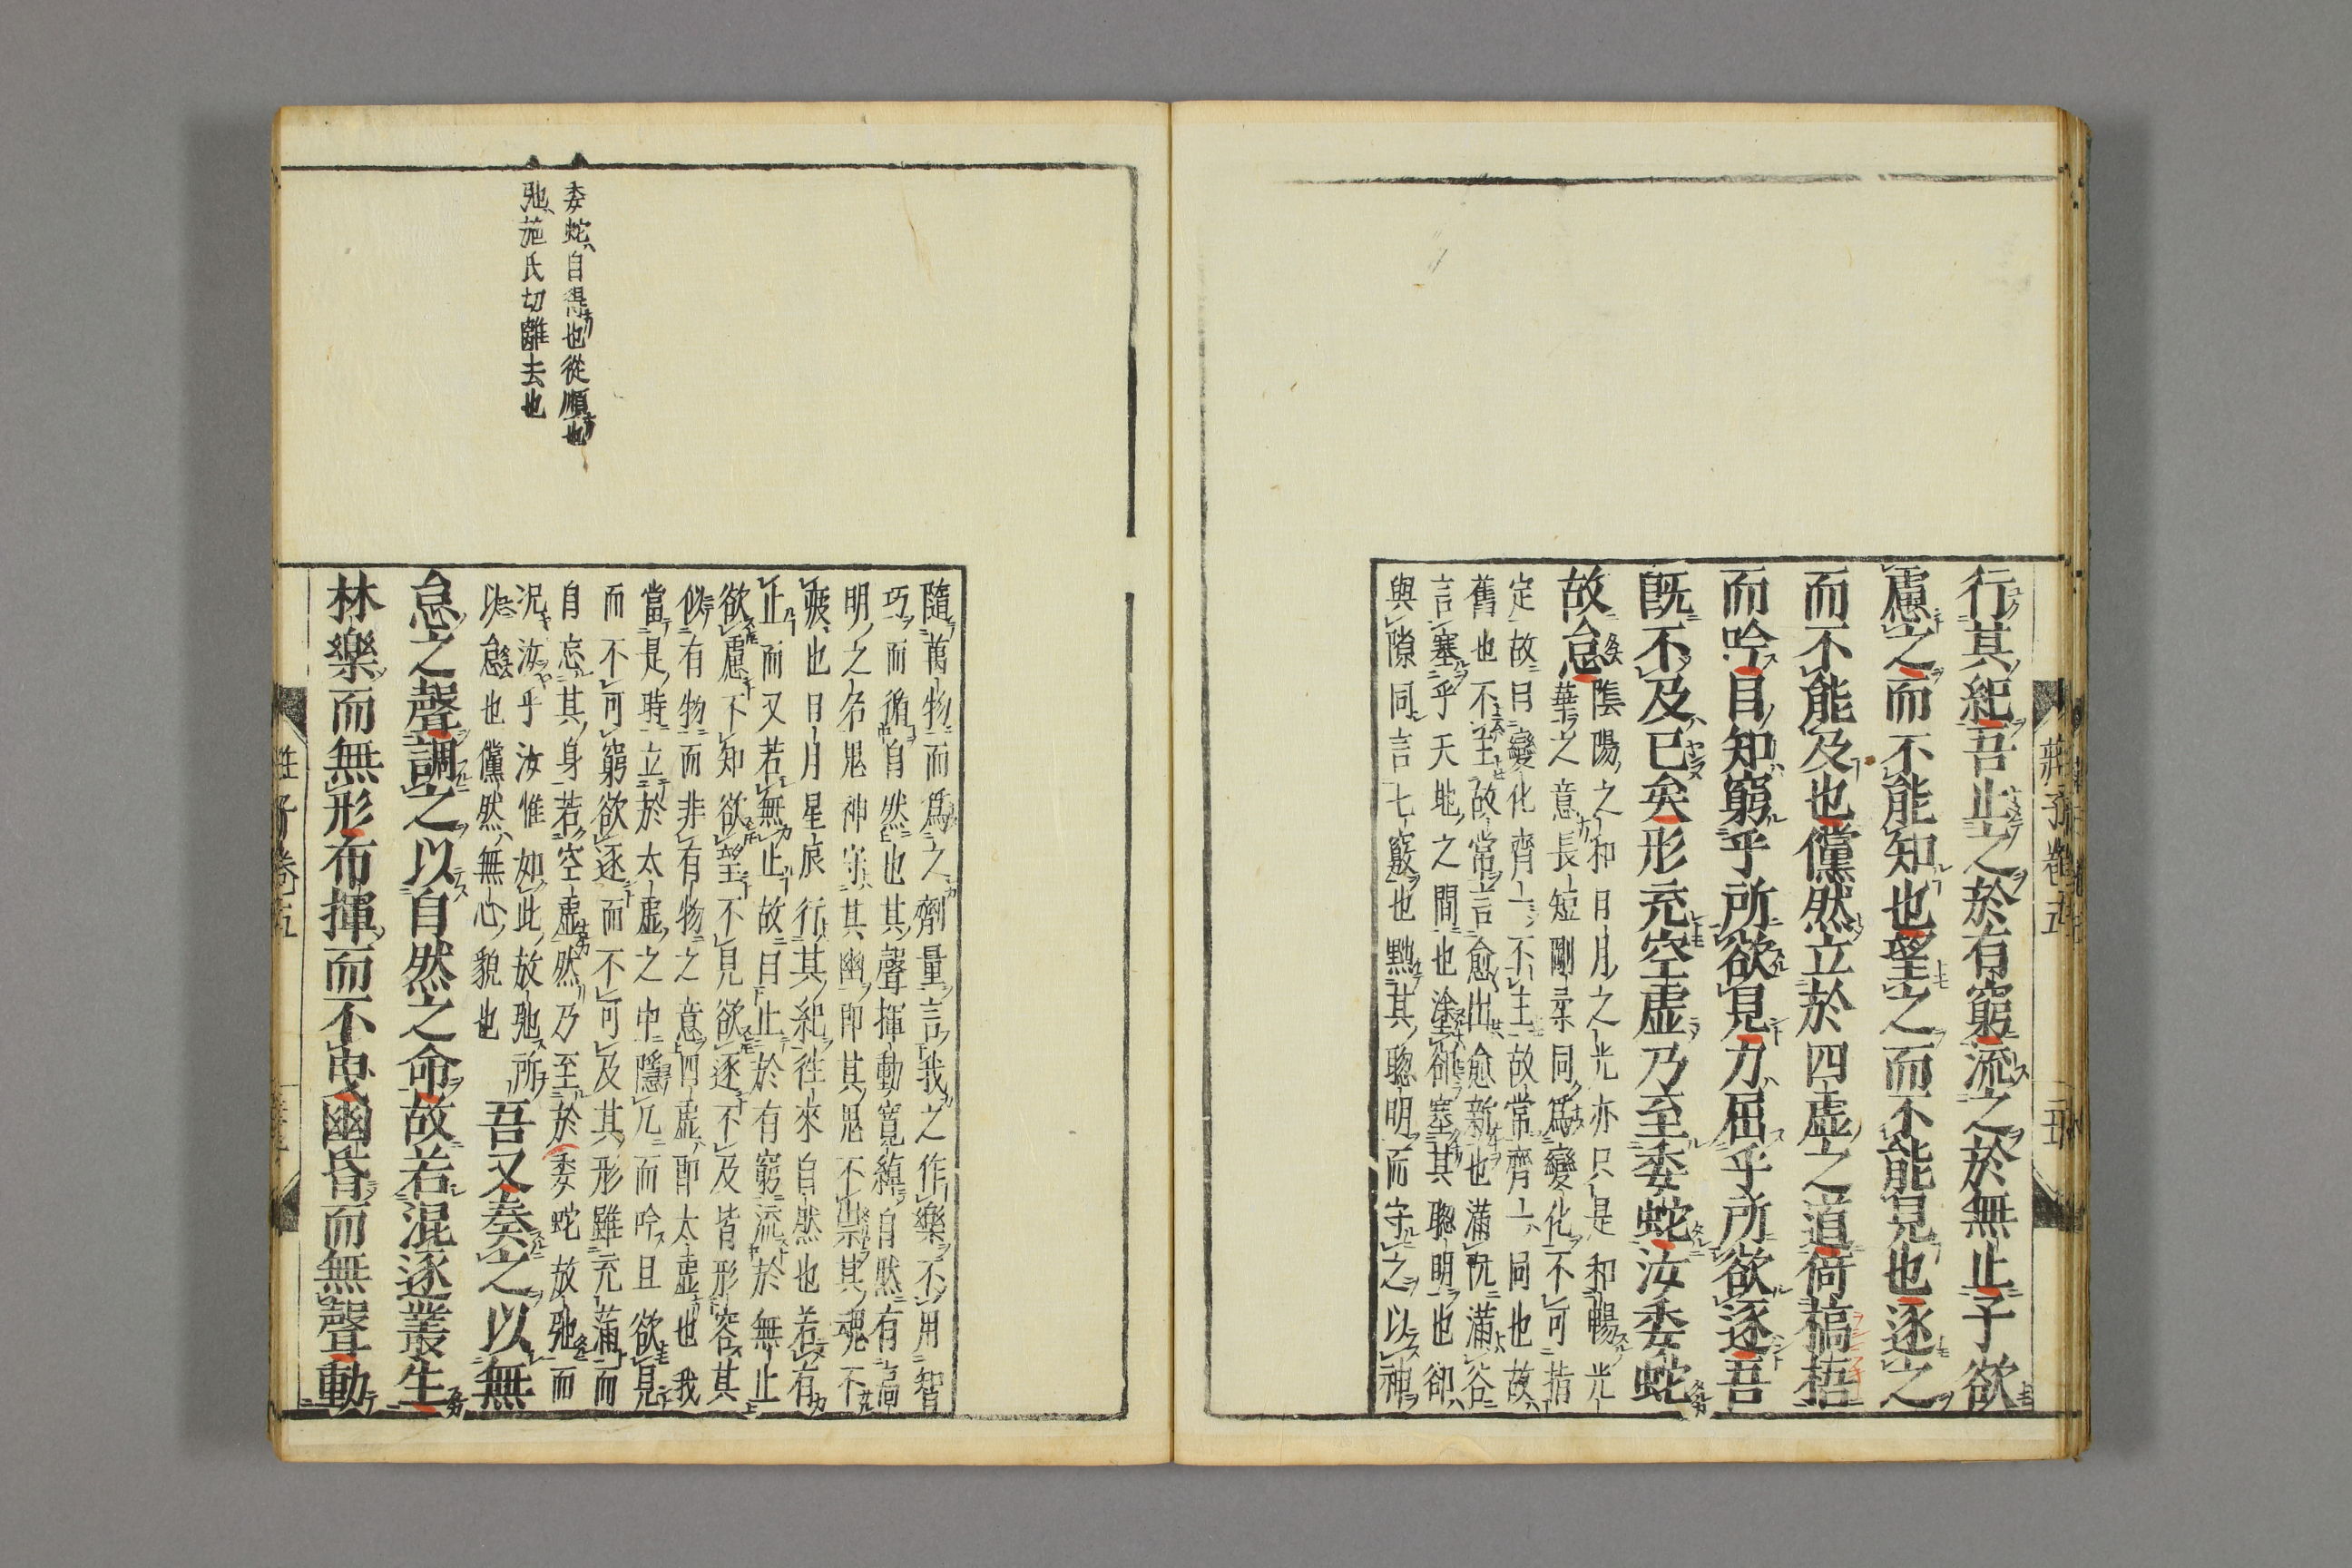 行其紀吾止之於有窮流之於無止子欲
慮之而不能知也望之而不能見也逐之
而不能及也儻然立於四虛之道倚槁梧
而吟目知窮乎所欲見力屈乎所欲逐吾
既不及已矣形充空虛乃至委蛇汝委蛇
故怠
陰陽之和日月之光亦只是和暢光
華之意長短剛柔同為變化不可指
定故曰變化齊一不主故常齊一同也故
舊也不主故常言愈出愈新也滿阬滿谷
言塞乎天地之間也塗郤塞其聰明也郤
與隙同言七竅也黜其聰明而守之以神
莊子卷五
委蛇自得也從順也
弛施氏切離去也
隨萬物而為之劑量言我之作樂不用智
巧而循自然也其聲揮動寬綽自然有高
明之名鬼神守其幽即其鬼不祟其魂不
疲也日月星辰行其紀往來自然也若有
止而又若無止故曰止於有窮流於無止
欲慮不知欲望不見欲逐不及皆形容其
似有物而非有物之意四虛即太虛也我
當是時立於太虛之中隱几而吟且欲見
而不可窮欲逐而不可及其形雖充滿而
自忘其身若空虛然乃至於委蛇故弛而
況汝乎汝惟如此故弛所
以怠也儻然無心貌也
吾又奏之以無
怠之聲調之以自然之命故若混逐叢生
林樂而無形布揮而不曳幽昏而無聲動
莊子卷五